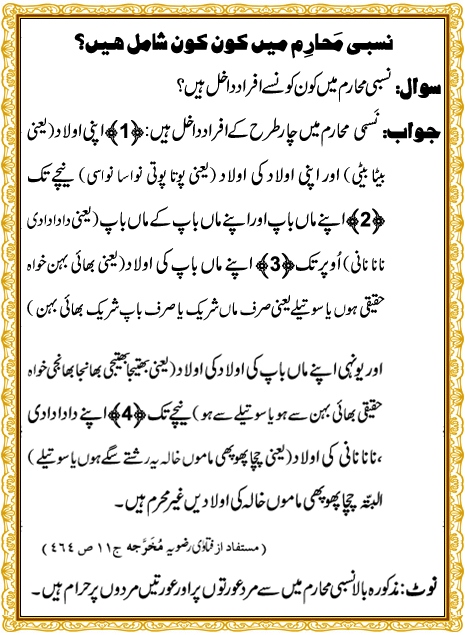 نسبی مَحارِم میں کون کون شامل ھیں؟
سوال: نسبی محارم میں کون کونسے افراد داخل ہیں؟
جواب: نَسَبی محارم میں چار طرح کے افراد داخل ہیں: ﴿1﴾ اپنی اولاد (یعنی
بیٹا بیٹی) اور اپنی اولاد کی اولاد (یعنی پوتا پوتی نواسا نواسی) نیچے تک
﴿2﴾ اپنے ماں باپ اور اپنے ماں باپ کے ماں باپ (یعنی دادا دادی
نانا نانی) اُوپر تک ﴿3﴾ اپنے ماں باپ کی اولاد (یعنی بھائی بہن خواہ
حقیقی ہوں یا سوتیلے یعنی صرف ماں شریک یا صرف باپ شریک بھائی بہن)
اور یونہی اپنے ماں باپ کی اولاد کی اولاد (یعنی بھتیجا بھتیجی بھانجا بھانجی خواہ
حقیقی بھائی بہن سے ہو یا سوتیلے سے ہو) نیچے تک ﴿4﴾ اپنے دادا دادی
، نانا نانی کی اولاد (یعنی چچا پھوپھی ماموں خالہ یہ رشتے سگے ہوں یا سوتیلے)
البتہ چچا پھوپھی ماموں خالہ کی اولادیں غیر محرم ہیں۔
(مستفاد از فتاوٰی رضویہ مُخَرَّجہ ج۱۱ ص ۴۶۴)
نوٹ: مذکورہ بالا نسبی محارم میں سے مرد عورتوں پر اور عورتیں مردوں پر حرام ہیں۔